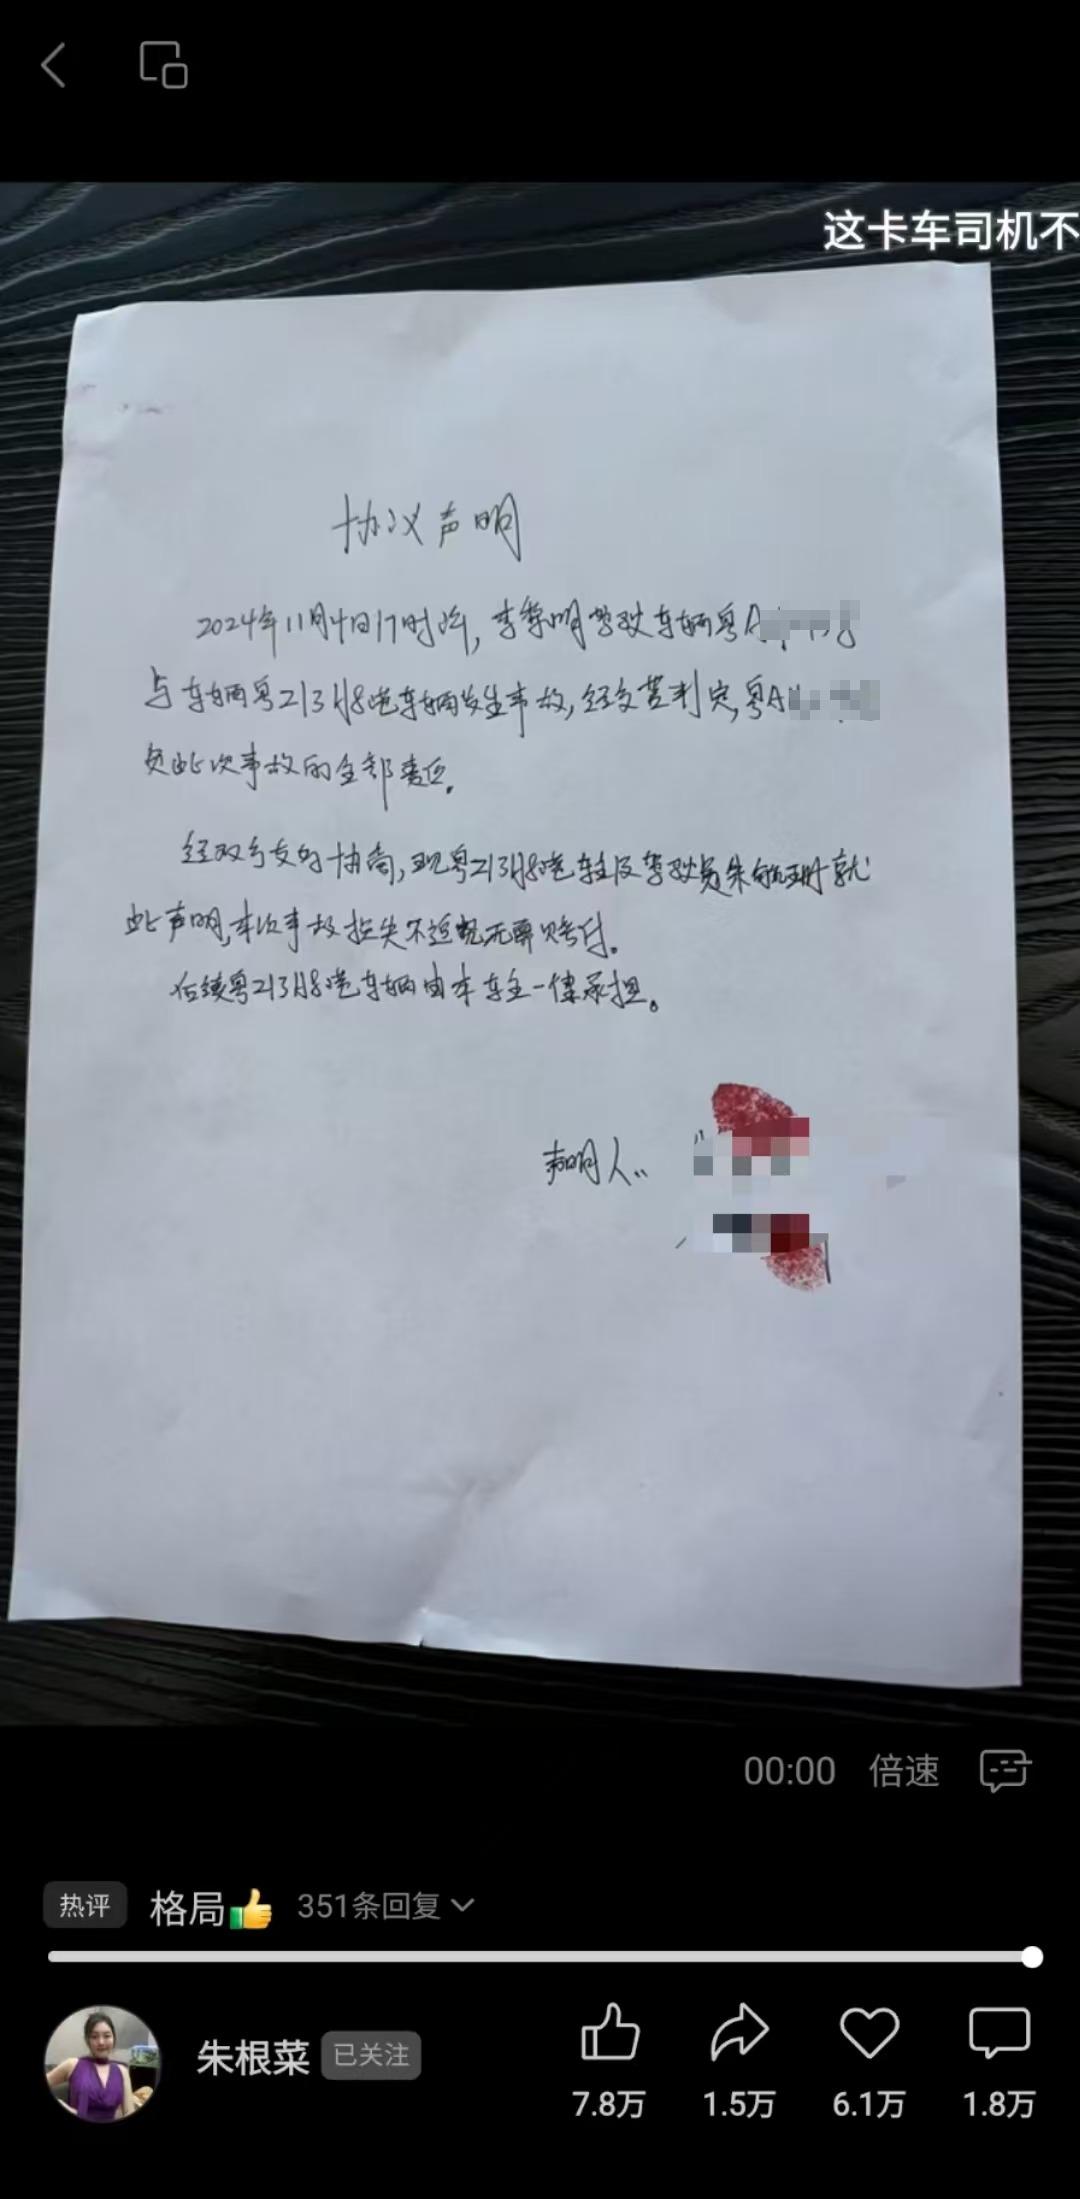 这卡车司机不
协议声明
2024年11月4日17时许,李黎明驾驶车辆粤A
与车辆粤Z13H8港车辆发生事故,经交警判定,粤A
负此次事故的全部责任.
经双方友好协商,现粤Z13H8港车主及驾驶员朱 就
此声明,本次事故损失不追究无需赔付.
后续粤Z13H8港车辆由本车主一律承担。
声明人:
00:00 倍速
热评 格局👍 351条回复
朱根菜 已关注
7.8万 1.5万 6.1万 1.8万